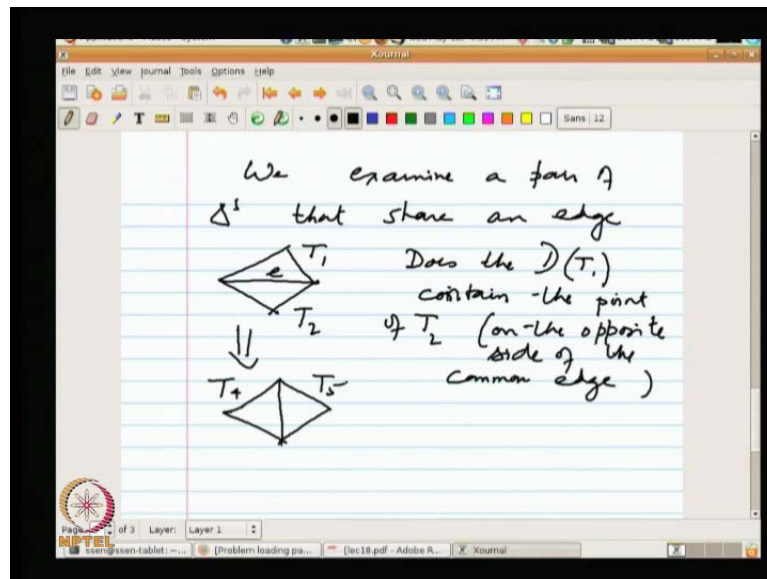 Xournal
File Edit View Journal Tools Options Help
Sans 12
We examine a pair of
Δs that share an edge
T1 Does the D(T1)
e
contain the point
T2 of T2 (on the opposite
side of the
T4 T5 common edge)
NPTEL
Page of 3 Layer: Layer 1
ssen@ssen-tablet: ~... [Problem loading pa... [lec18.pdf - Adobe R... Xournal